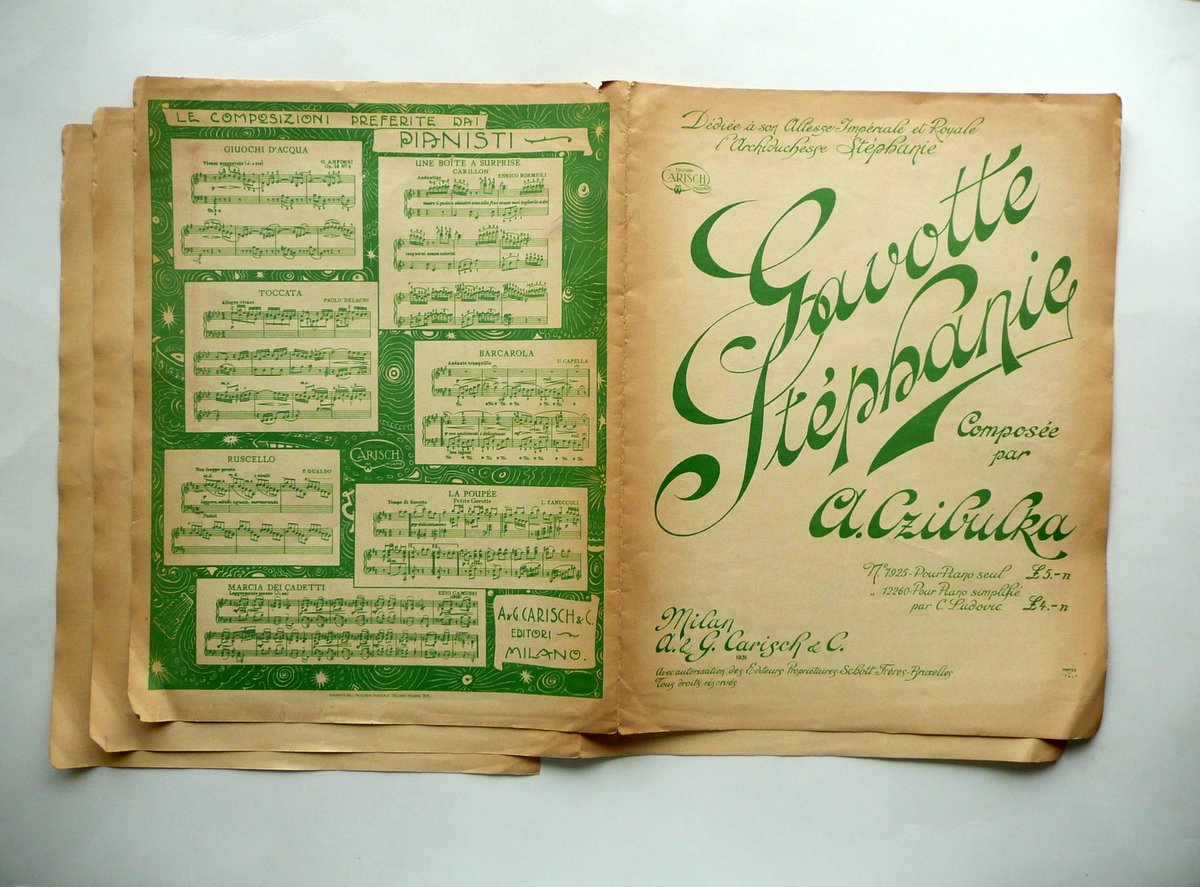 LE COMPOSIZIONI PREFERITE DAI
PIANISTI
GIUOCHI D'ACQUA
G. ANFOSSI
TOCCATA
Allegro vivace
PAOLO DELACHI
RUSCELLO
Non troppo presto
F. GUALDO
UNE BOÎTE A SURPRISE
CARILLON
Andantino
ENRICO BORMIOLI
BARCAROLA
Andante tranquillo
U. CAPELLA
CARISCH
LA POUPÉE
Petite Gavotte
Tempo di Gavotta
L. ZANUCCOLI
MARCIA DEI CADETTI
EZIO CAMUSSI
A. & G. CARISCH & C.
EDITORI
MILANO.
Dédiée à son Altesse Impériale et Royale
l'Archiduchesse Stéphanie
CARISCH
Gavotte
Stéphanie
Composée
par
A. Czibulka
No 7925 - Pour Piano seul £ 5.-n
„ 12260 - Pour Piano simplifié
par C. Ludovic £ 4.-n
Milan
A. & G. Carisch & C.
1931
Avec autorisation des Editeurs Propriétaires - Schott Frères - Bruxelles
Tous droits réservés
PRINTED
ITALY